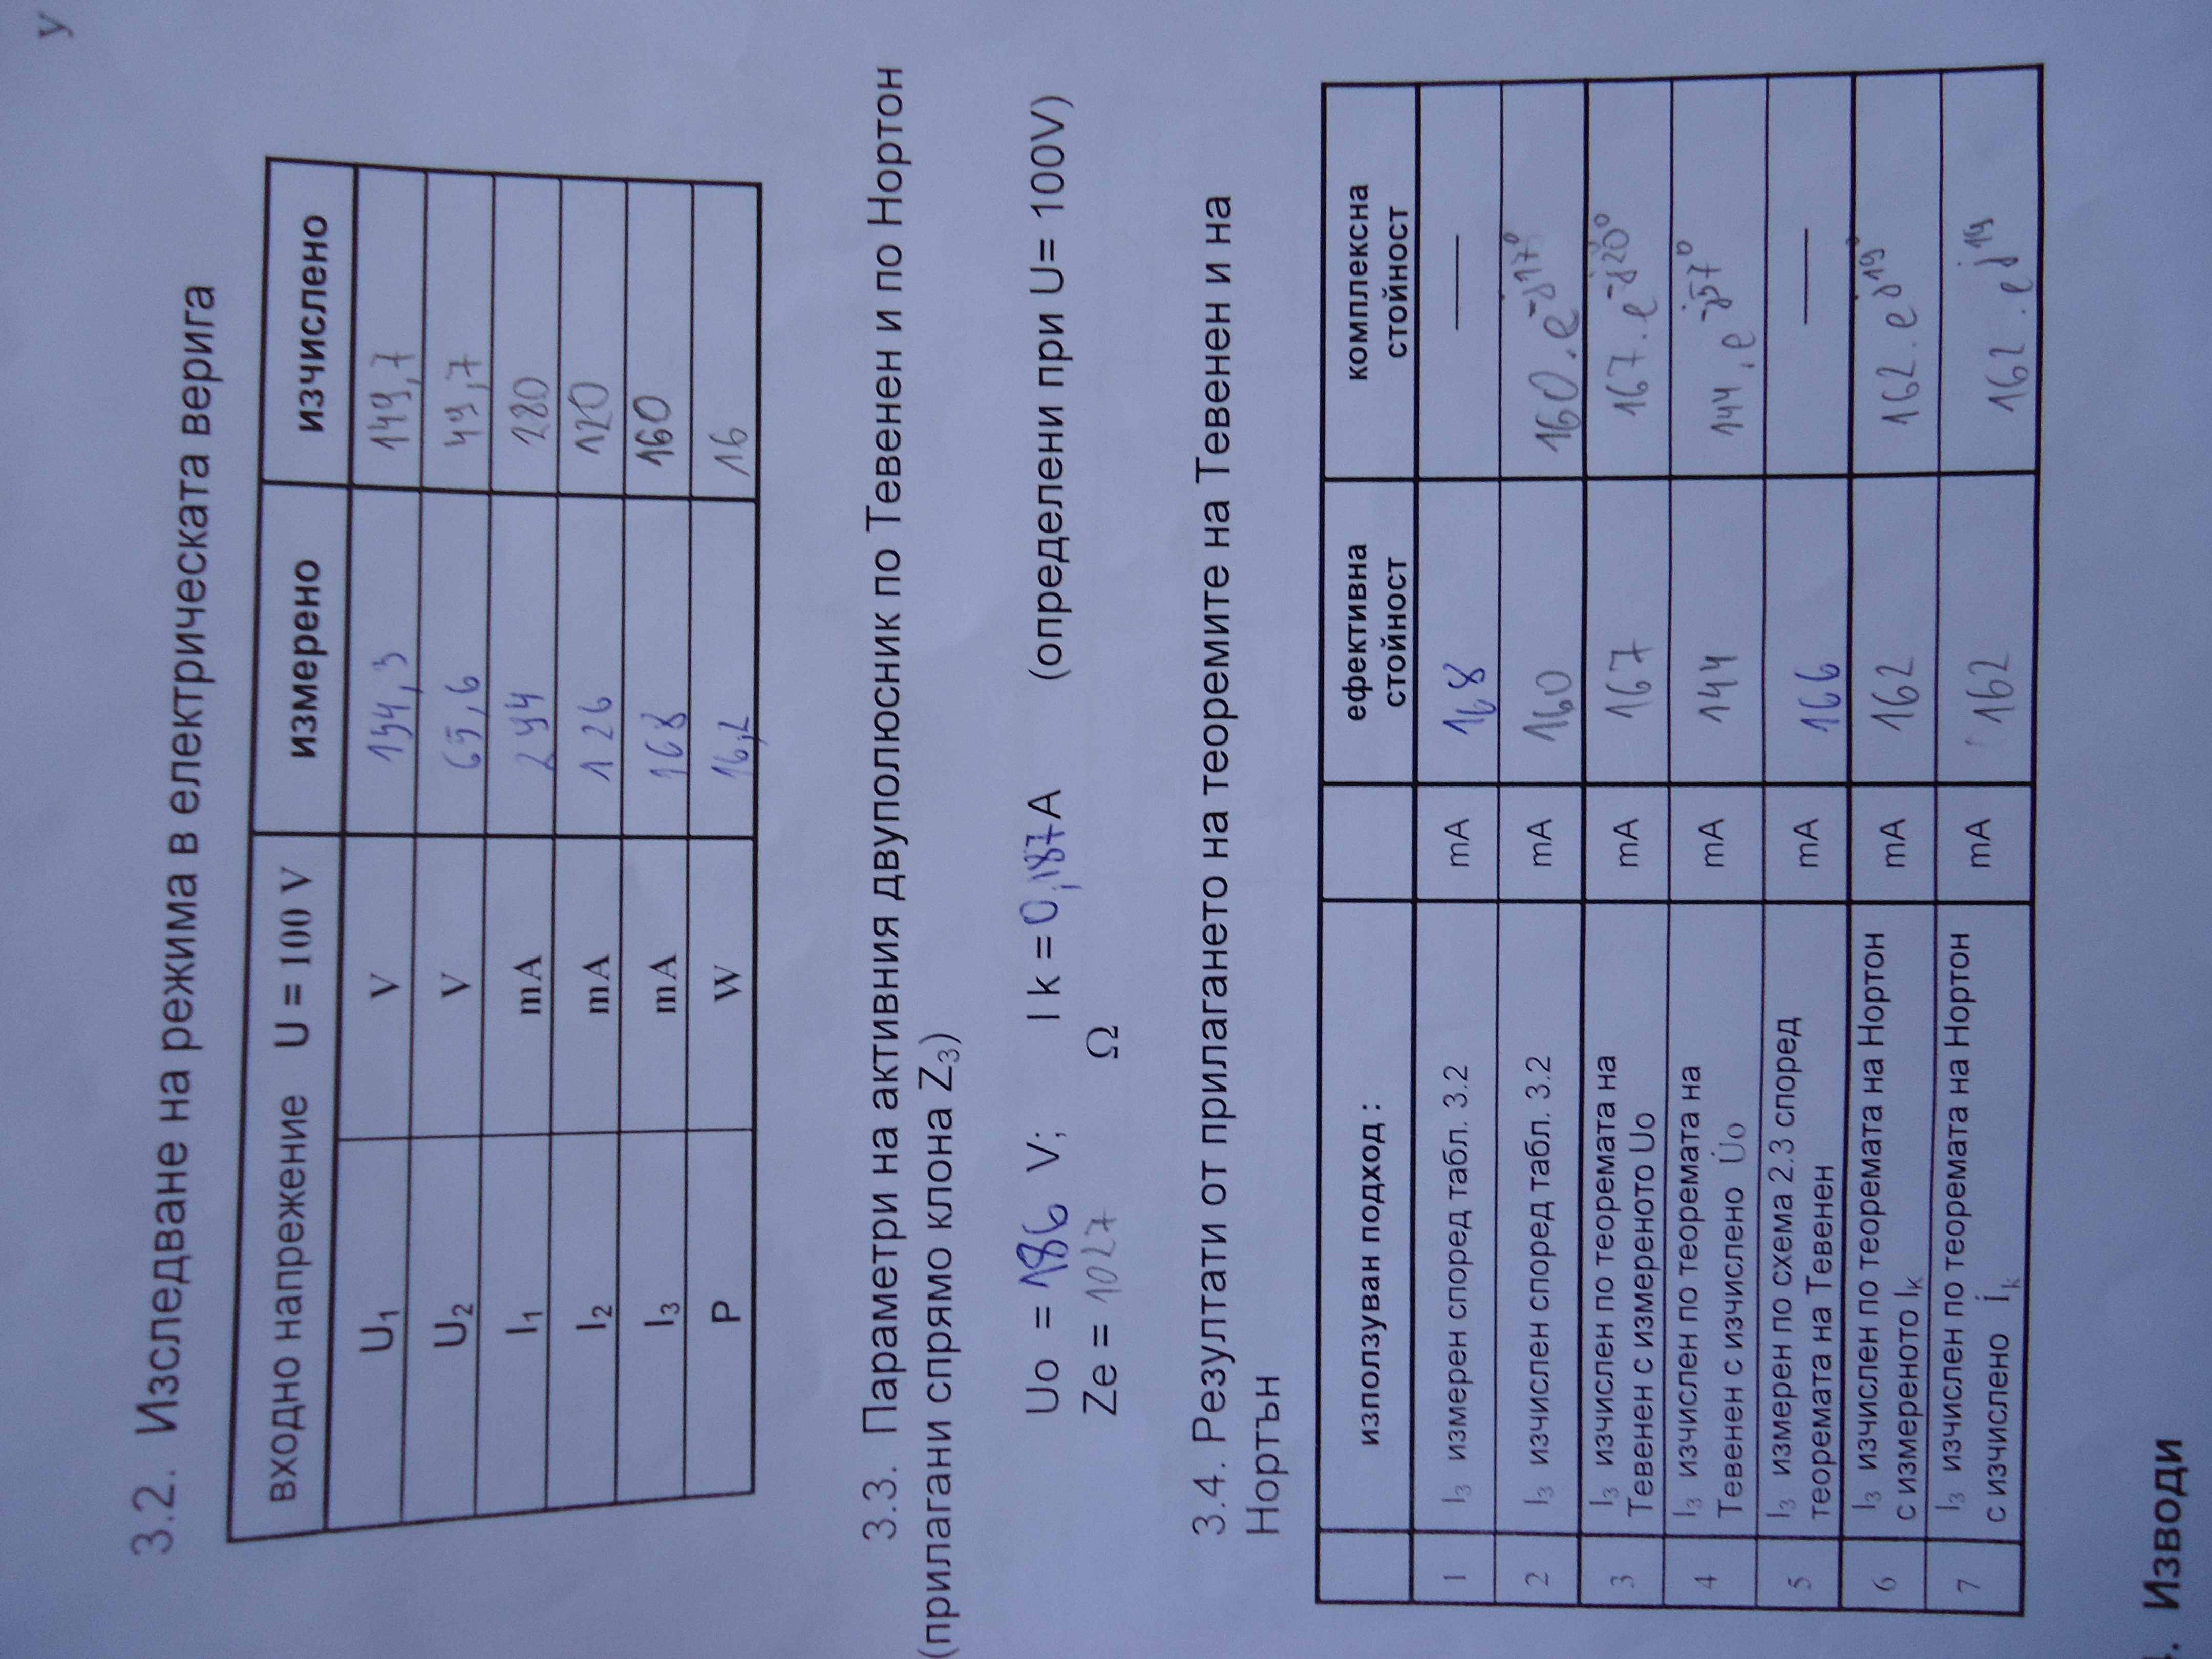 у
3.2. Изследване на режима в електрическата верига
входно напрежение U = 100 V измерено изчислено
U1 V 154,3 149,7
U2 V 65,6 49,7
I1 mA 294 280
I2 mA 126 120
I3 mA 168 160
P W 16,2 16
3.3. Параметри на активния двуполюсник по Тевенен и по Нортон
(прилагани спрямо клона Z3)
Uo = 186 V; I k = 0,187A (определени при U= 100V)
Ze = 1027 Ω
3.4. Резултати от прилагането на теоремите на Тевенен и на
Нортън
използуван подход : ефективна стойност комплексна стойност
1 I3 измерен според табл. 3.2 mA 168 —
2 I3 изчислен според табл. 3.2 mA 160 160.e-j17°
3 I3 изчислен по теоремата на Тевенен с измереното Uo mA 167 167.e-j20°
4 I3 изчислен по теоремата на Тевенен с изчислено U̇o mA 144 144.e-j57°
5 I3 измерен по схема 2.3 според теоремата на Тевенен mA 166 —
6 I3 изчислен по теоремата на Нортон с измереното Iк mA 162 162.ej19°
7 I3 изчислен по теоремата на Нортон с изчислено İk mA 162 162.ej19
. Изводи